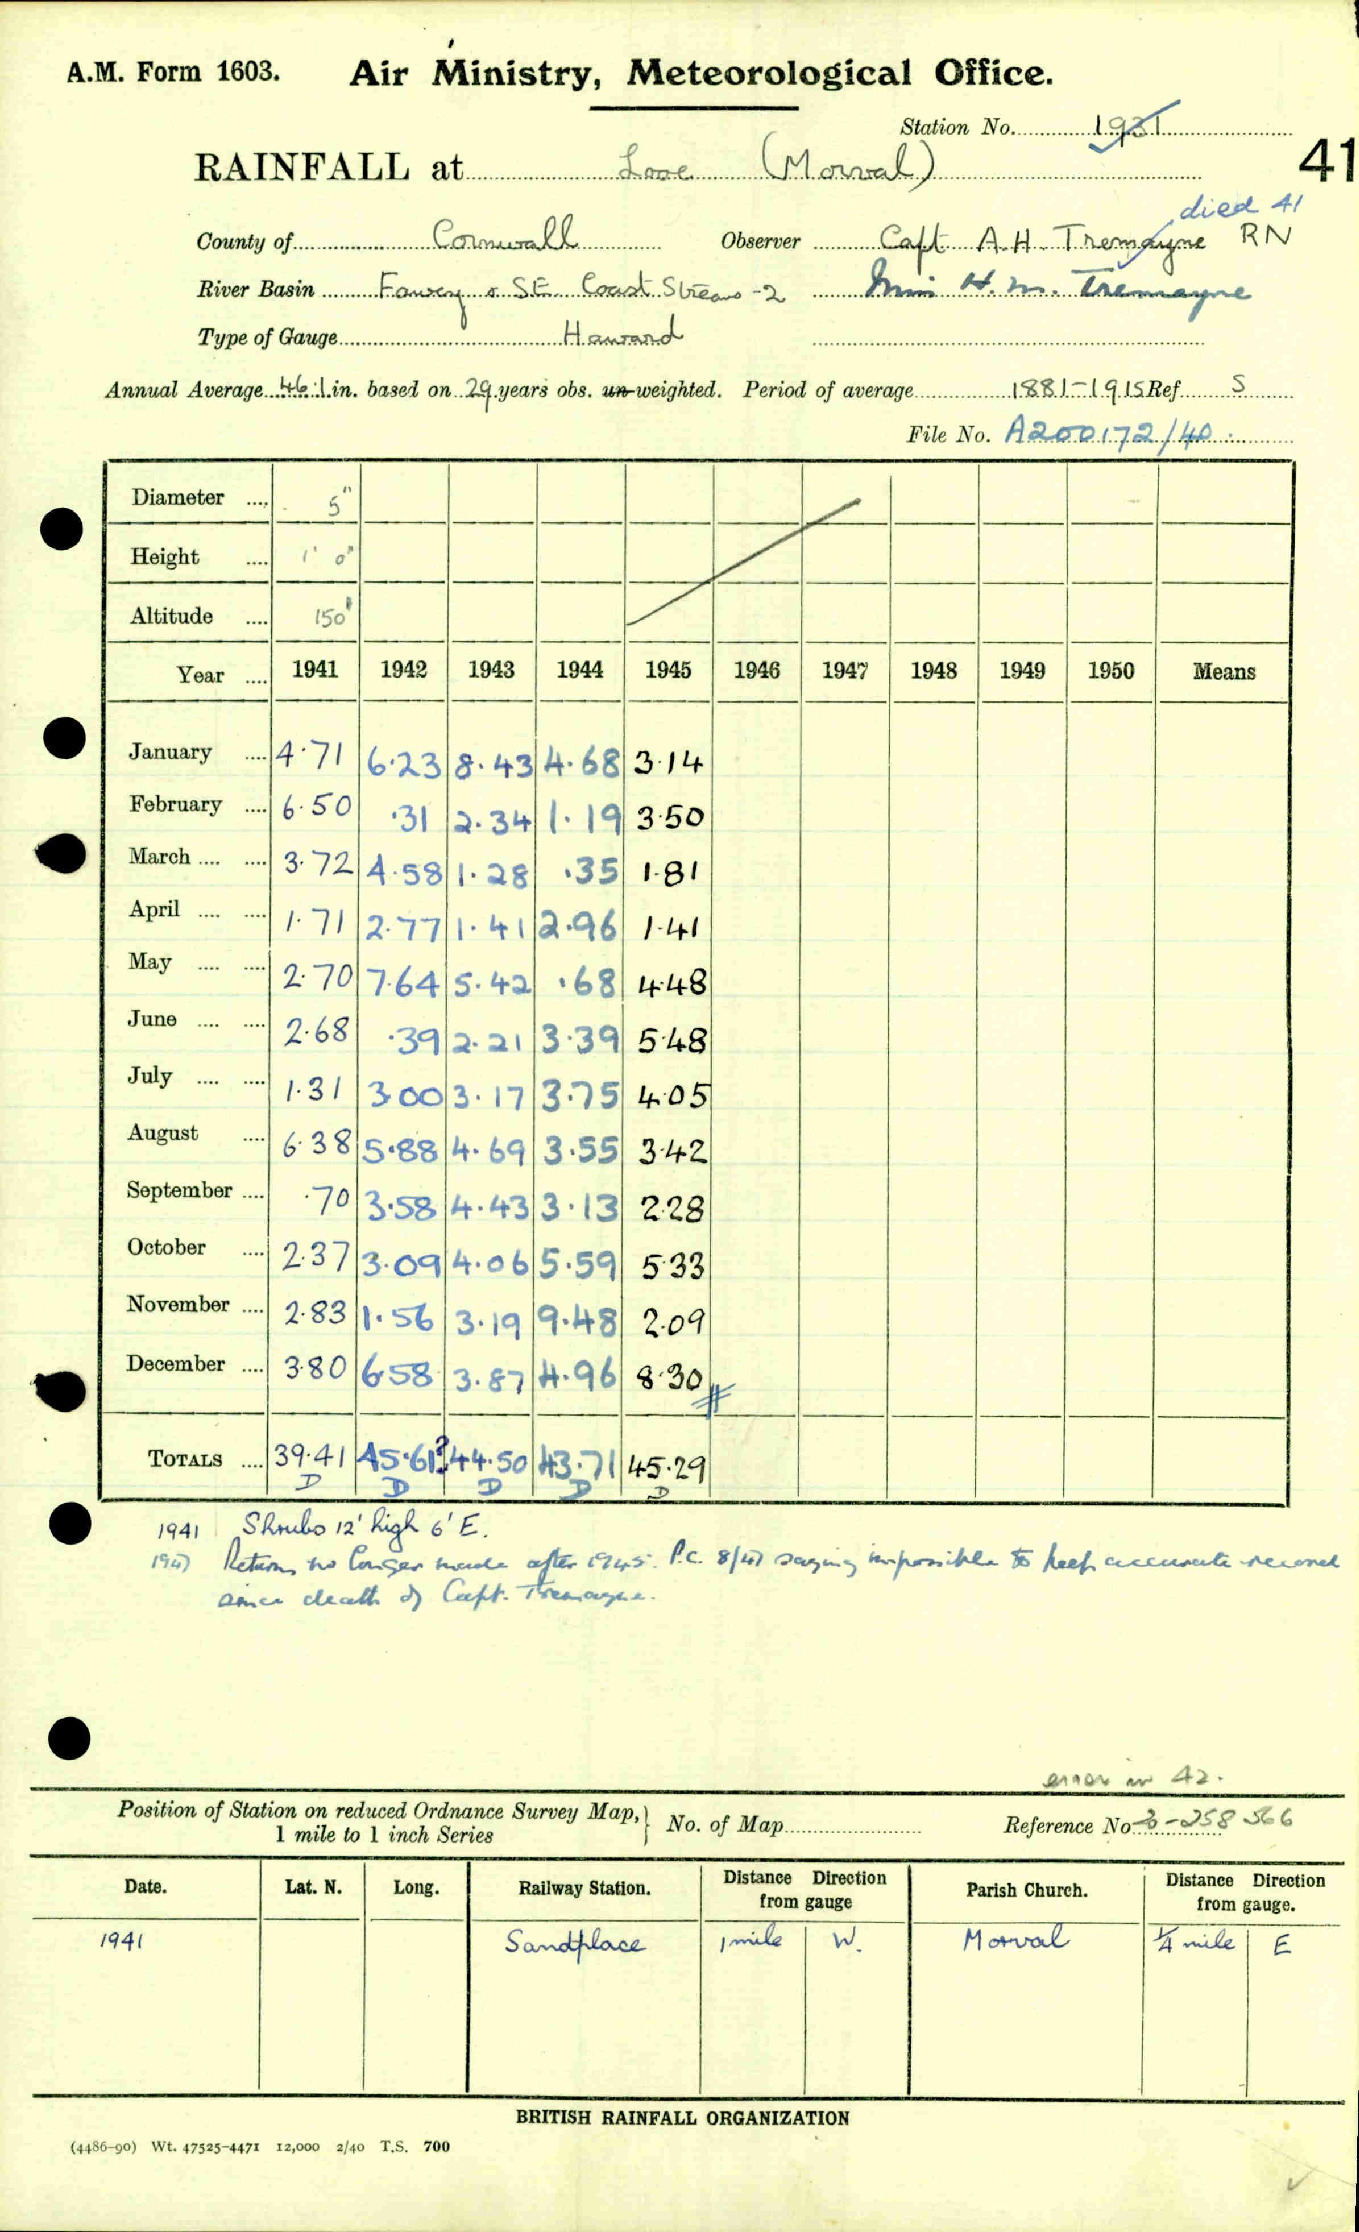 A.M. Form 1603. Air Ministry, Meteorological Office.
Station No. 1931
41
RAINFALL at Looe (Morval)
died 41
County of Cornwall Observer Capt. A. H. Tremayne RN
River Basin Fowey & SE Coast Streams -2 Miss H. M. Tremayne
Type of Gauge Howard
Annual Average 46.1 in. based on 29 years obs. un-weighted. Period of average 1881-1915 Ref. S
File No. A200172/40.
Diameter .... 5"
Height .... 1' 0"
Altitude .... 150'
Year .... 1941 1942 1943 1944 1945 1946 1947 1948 1949 1950 Means
January .... 4.71 6.23 8.43 4.68 3.14
February .... 6.50 .31 2.34 1.19 3.50
March .... .... 3.72 4.58 1.28 .35 1.81
April .... .... 1.71 2.77 1.41 2.96 1.41
May .... .... 2.70 7.64 5.42 .68 4.48
June .... .... 2.68 .39 2.21 3.39 5.48
July .... .... 1.31 3.00 3.17 3.75 4.05
August .... 6.38 5.88 4.69 3.55 3.42
September .... .70 3.58 4.43 3.13 2.28
October .... 2.37 3.09 4.06 5.59 5.33
November .... 2.83 1.56 3.19 9.48 2.09
December .... 3.80 6.58 3.87 4.96 8.30
TOTALS .... 39.41 45.61? 44.50 43.71 45.29
D D D D D
1941 Shrubs 12' high 6' E.
1947 Return no longer made after 1945. P.C. 8/47 saying impossible to keep accurate record
since death of Capt. Tremayne.
error in 42.
Position of Station on reduced Ordnance Survey Map, 1 mile to 1 inch Series } No. of Map Reference No 20-258566
Date. Lat. N. Long. Railway Station. Distance Direction from gauge Parish Church. Distance Direction from gauge.
1941 Sandplace 1 mile W. Morval 1/4 mile E
BRITISH RAINFALL ORGANIZATION
(4486-90) Wt. 47525-4471 12,000 2/40 T.S. 700